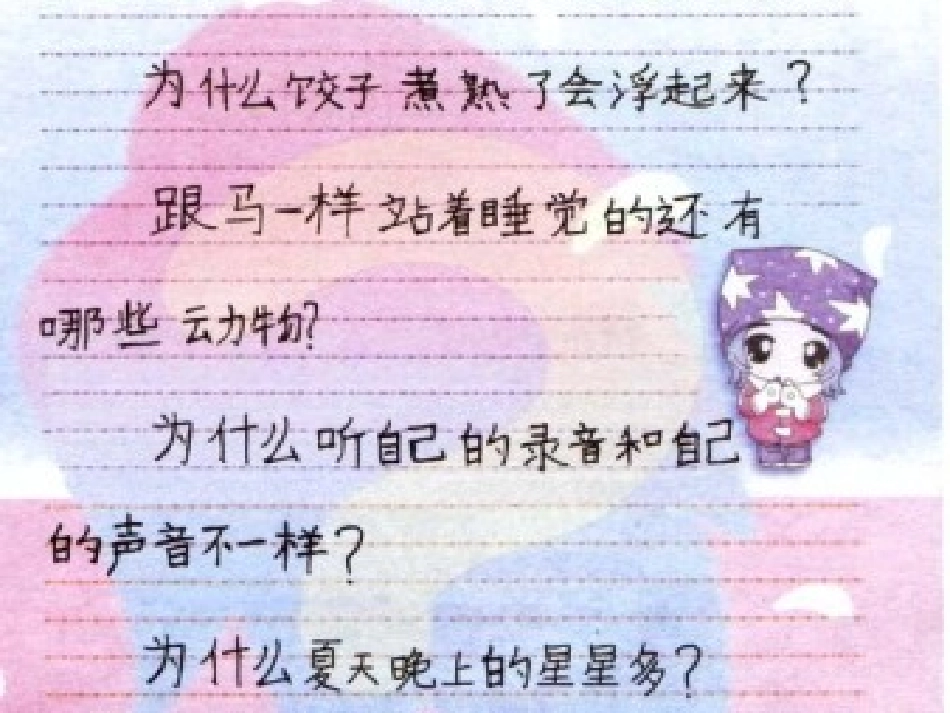 为什么饺子煮熟了会浮起来？
跟马一样站着睡觉的还有
哪些动物？
为什么听自己的录音和自己
的声音不一样？
为什么夏天晚上的星星多？